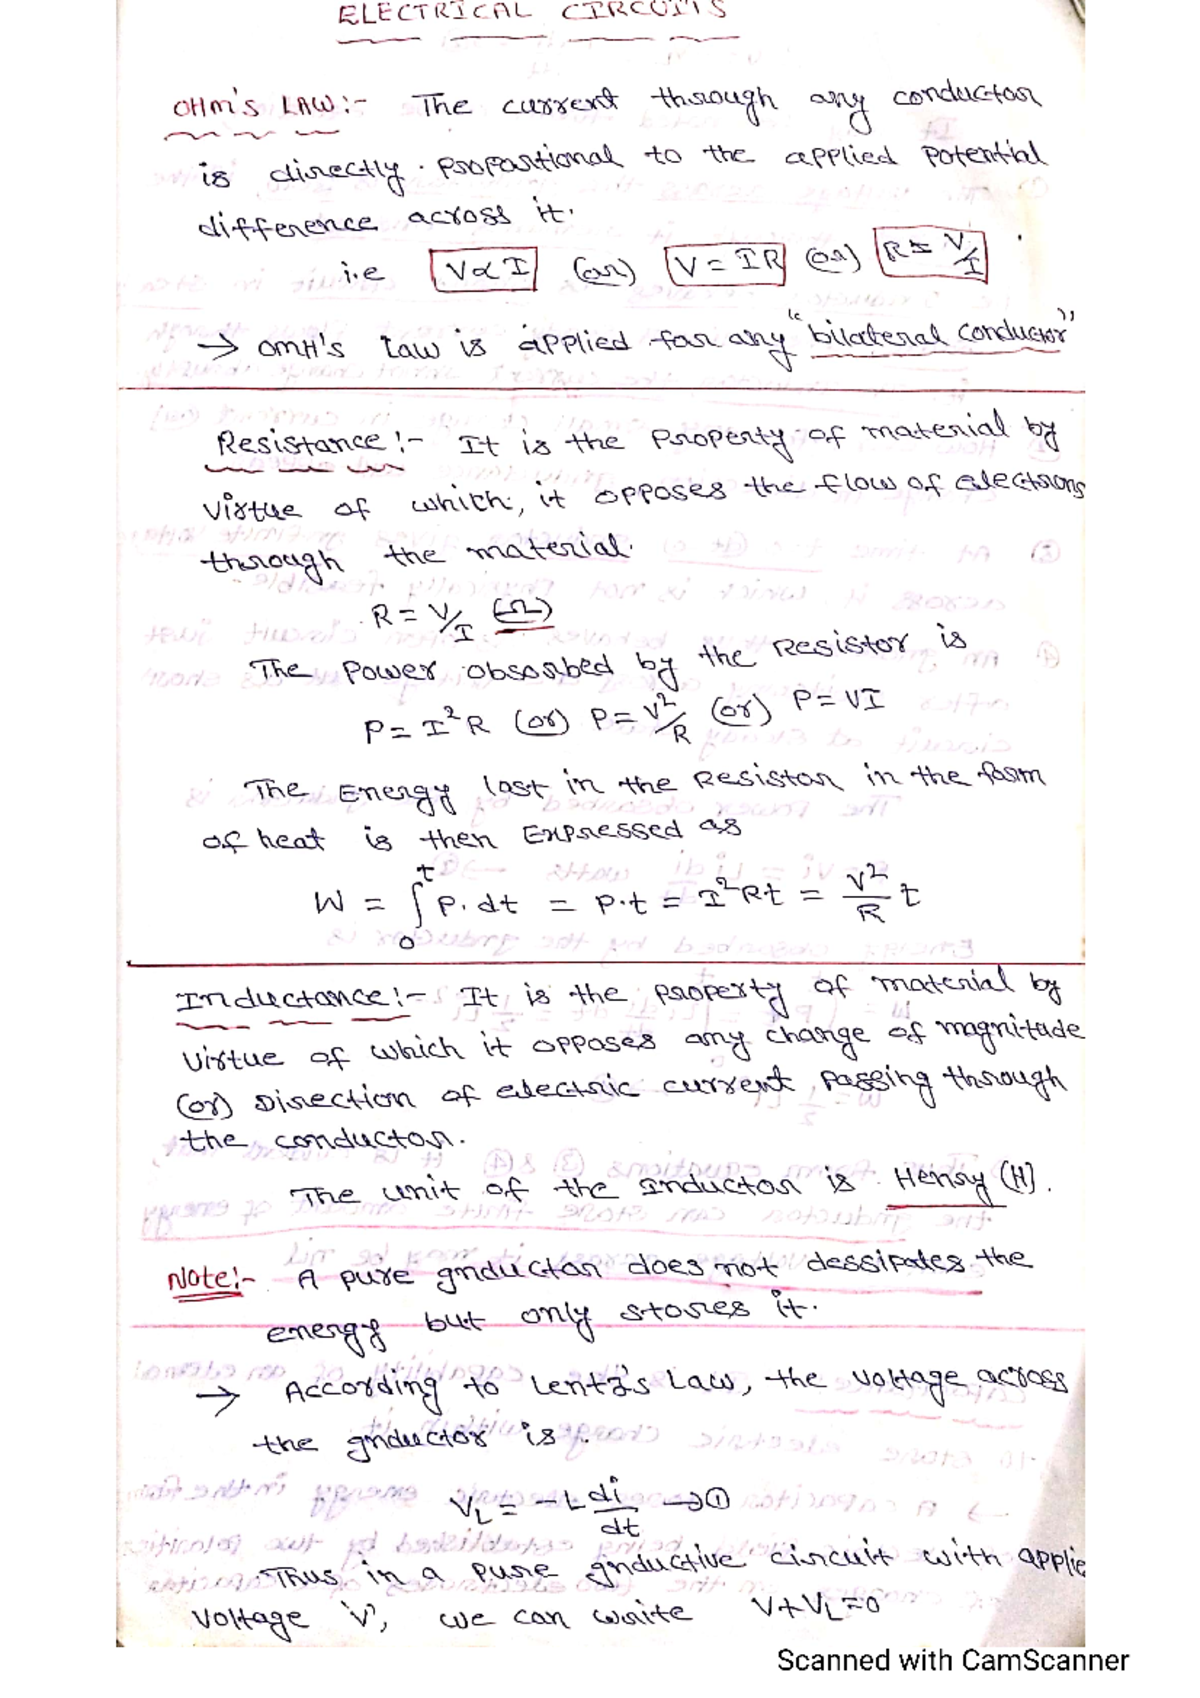 ELECTRICAL CIRCUITS
OHM'S LAW:- The current through any conductor
is directly proportional to the applied potential
difference across it.
i.e V∝I (or) V=IR (or) R=V/I
→ OMH's Law is applied for any "bilateral conductor"
Resistance:- It is the Property of material by
virtue of which, it opposes the flow of electrons
through the material.
R=V/I (Ω)
The Power obsorbed by the Resistor is
P=I²R (or) P=V²/R (or) P=VI
The Energy lost in the Resistor in the form
of heat is then Expressed as
W = ∫₀ᵗ P.dt = P.t = I²Rt = V²/R t
Inductance:- It is the property of material by
virtue of which it opposes any change of magnitude
(or) Direction of electric current passing through
the conductor.
The unit of the Inductor is Henry (H).
Note:- A pure Inductor does not dessipates the
energy but only stores it.
→ According to Lentz's Law, the voltage across
the Inductor is
V_L = -L di/dt →①
Thus in a pure Inductive circuit with applie
voltage 'V', we can write V+V_L=0
Scanned with CamScanner